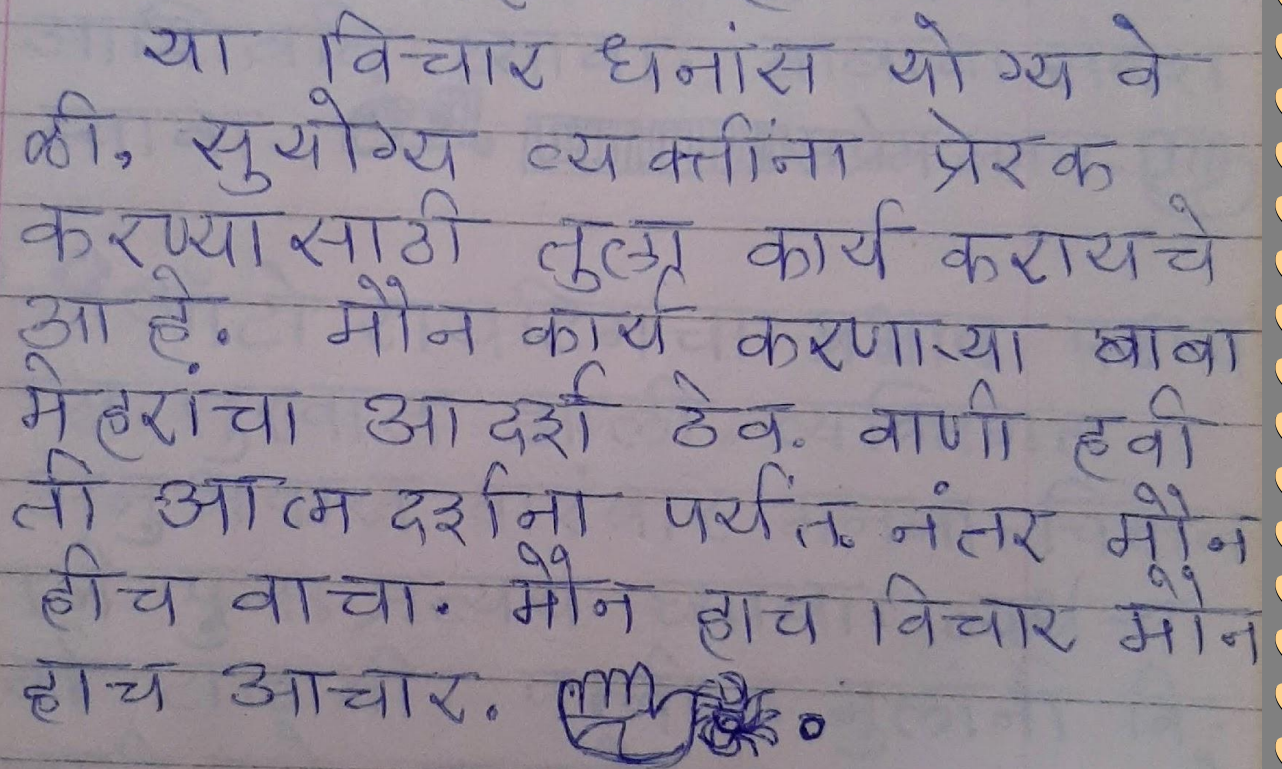 या विचार धनांस योग्य वे
ळी, सुयोग्य व्यक्तींना प्रेरक
करण्यासाठी तुला कार्य करायचे
आहे. मौन कार्य करणाऱ्या बाबा
मेहरांचा आदर्श ठेव. वाणी हवी
ती आत्म दर्शना पर्यंत. नंतर मौन
हीच वाचा. मौन हाच विचार मौन
हाच आचार.